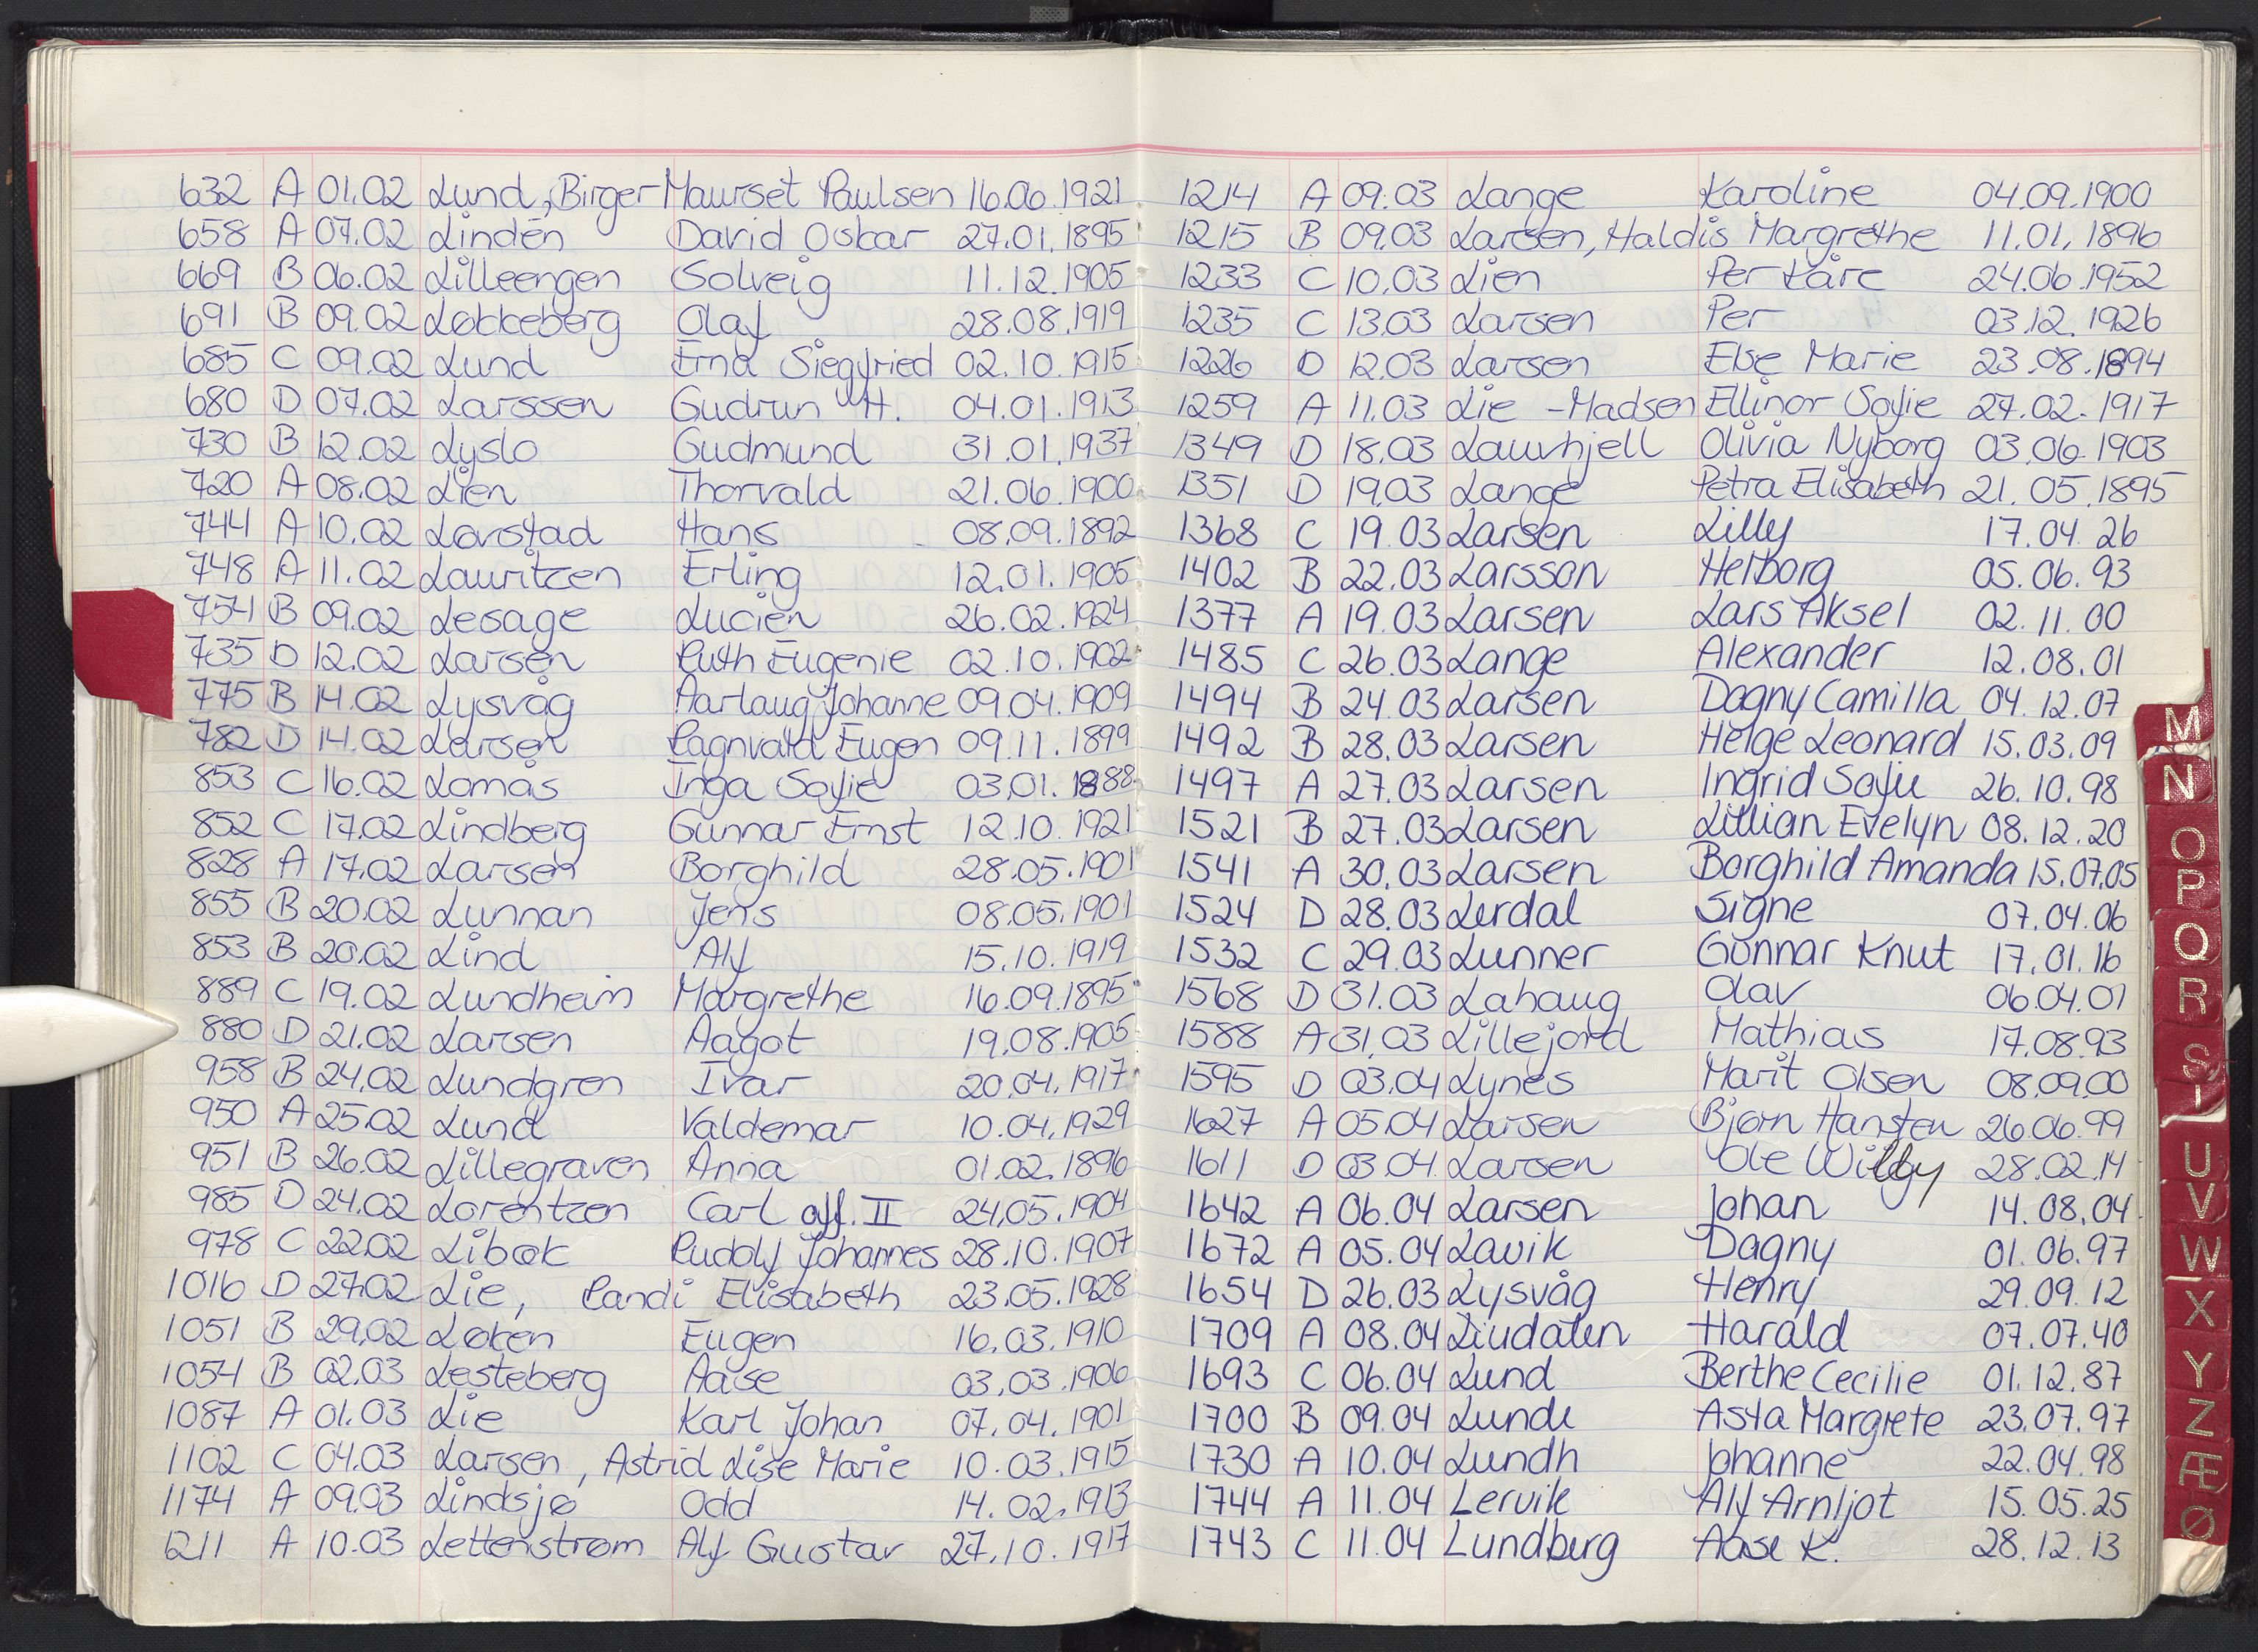 632 A 01.02 Lund, Birger Maurset Paulsen 16.06.1921
658 A 07.02 Lindén David Oskar 27.01.1895
669 B 06.02 Lilleengen Solveig 11.12.1905
691 B 09.02 Løkkeberg Olaf 28.08.1919
685 C 09.02 Lund Erna Siegfried 02.10.1915
680 D 07.02 Larssen Gudrun H. 04.01.1913
730 B 12.02 Lyslo Gudmund 31.01.1937
720 A 08.02 Lien Thorvald 21.06.1900
744 A 10.02 Lorstad Hans 08.09.1892
748 A 11.02 Lauritzen Erling 12.01.1905
754 B 09.02 Lesage Lucien 26.02.1924
735 D 12.02 Larsen Ruth Eugenie 02.10.1902
775 B 14.02 Lysvåg Aartaug Johanne 09.04.1909
782 D 14.02 Larsen Ragnvald Eugen 09.11.1899
853 C 16.02 Lomås Inga Sofie 03.01.1888
852 C 17.02 Lindberg Gunnar Ernst 12.10.1921
828 A 17.02 Larsen Borghild 28.05.1901
855 B 20.02 Lunnan Jens 08.05.1901
853 B 20.02 Lind Alf 15.10.1919
889 C 19.02 Lundheim Margrethe 16.09.1895
880 D 21.02 Larsen Aagot 19.08.1905
958 B 24.02 Lundgren Ivar 20.04.1917
950 A 25.02 Lund Valdemar 10.04.1929
951 B 26.02 Lillegraven Anna 01.02.1896
985 D 24.02 Lorentzen Carl aff. II 24.05.1904
978 C 22.02 Libæk Rudolf Johannes 28.10.1907
1016 D 27.02 Lie, Randi Elisabeth 23.05.1928
1051 B 29.02 Løken Eugen 16.03.1910
1054 B 02.03 Lesteberg Aase 03.03.1906
1087 A 01.03 Lie Karl Johan 07.04.1901
1102 C 04.03 Larsen, Astrid Lise Marie 10.03.1915
1174 A 09.03 Lindsjø Odd 14.02.1913
1211 A 10.03 Lettenstrøm Alf Gustav 27.10.1917
1214 A 09.03 Lange Karoline 04.09.1900
1215 B 09.03 Larsen, Haldis Margrethe 11.01.1896
1233 C 10.03 Lien Per Kåre 24.06.1952
1235 C 13.03 Larsen Per 03.12.1926
1226 D 12.03 Larsen Else Marie 23.08.1894
1259 A 11.03 Lie -Madsen Ellinor Sofie 27.02.1917
1349 D 18.03 Lauvhjell Olivia Nyborg 03.06.1903
1351 D 19.03 Lange Petra Elisabeth 21.05.1895
1368 C 19.03 Larsen Lilly 17.04.26
1402 B 22.03 Larsson Helborg 05.06.93
1377 A 19.03 Larsen Lars Aksel 02.11.00
1485 C 26.03 Lange Alexander 12.08.01
1494 B 24.03 Larsen Dagny Camilla 04.12.07
1492 B 28.03 Larsen Helge Leonard 15.03.09
1497 A 27.03 Larsen Ingrid Sofie 26.10.98
1521 B 27.03 Larsen Lillian Evelyn 08.12.20
1541 A 30.03 Larsen Borghild Amanda 15.07.05
1524 D 28.03 Lerdal Signe 07.04.06
1532 C 29.03 Lunner Gunnar Knut 17.01.16
1568 D 31.03 Lahaug Olav 06.04.01
1588 A 31.03 Lillejord Mathias 17.08.93
1595 D 03.04 Lynes Marit Olsen 08.09.00
1627 A 05.04 Larsen Bjørn Hansten 26.06.99
1611 D 03.04 Larsen Ole Willy 28.02.14
1642 A 06.04 Larsen Johan 14.08.04
1672 A 05.04 Lavik Dagny 01.06.97
1654 D 26.03 Lysvåg Henry 29.09.12
1709 A 08.04 Liudalen Harald 07.07.40
1693 C 06.04 Lund Berthe Cecilie 01.12.87
1700 B 09.04 Lunde Asta Margrete 23.07.97
1730 A 10.04 Lundh Johanne 22.04.98
1744 A 11.04 Lervik Alf Arnljot 15.05.25
1743 C 11.04 Lundberg Aase K. 28.12.13
M
N
O
P
Q
R
S
T
U
V
W
X
Y
Z
Æ
Ø